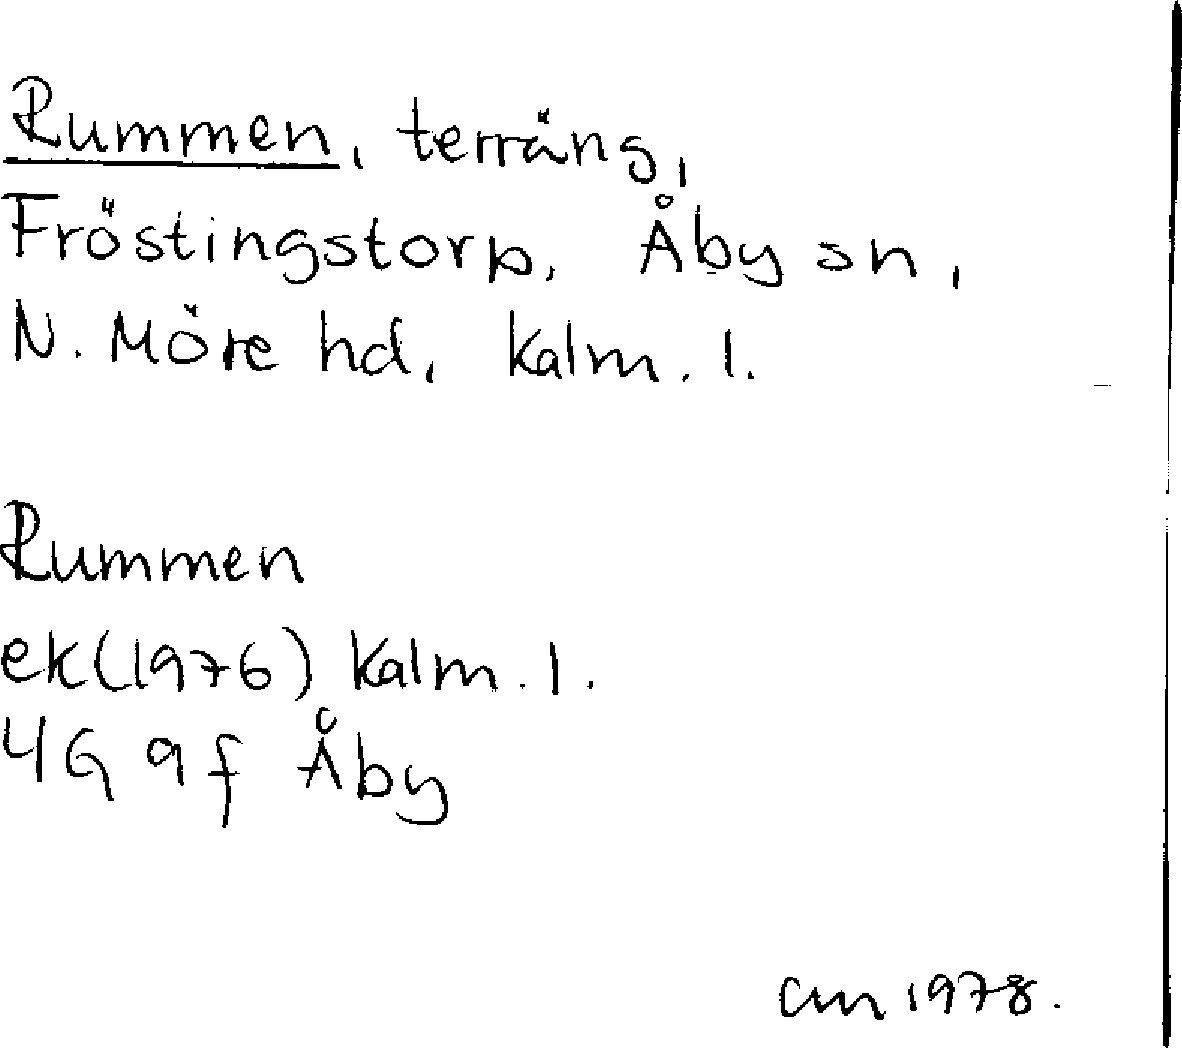 Rummen, terräng,
Fröstingstorp, Åby sn,
N. Möre hd, Kalm. l.
Rummen
ek (1976) Kalm. l.
4G 9f Åby
cm 1978.